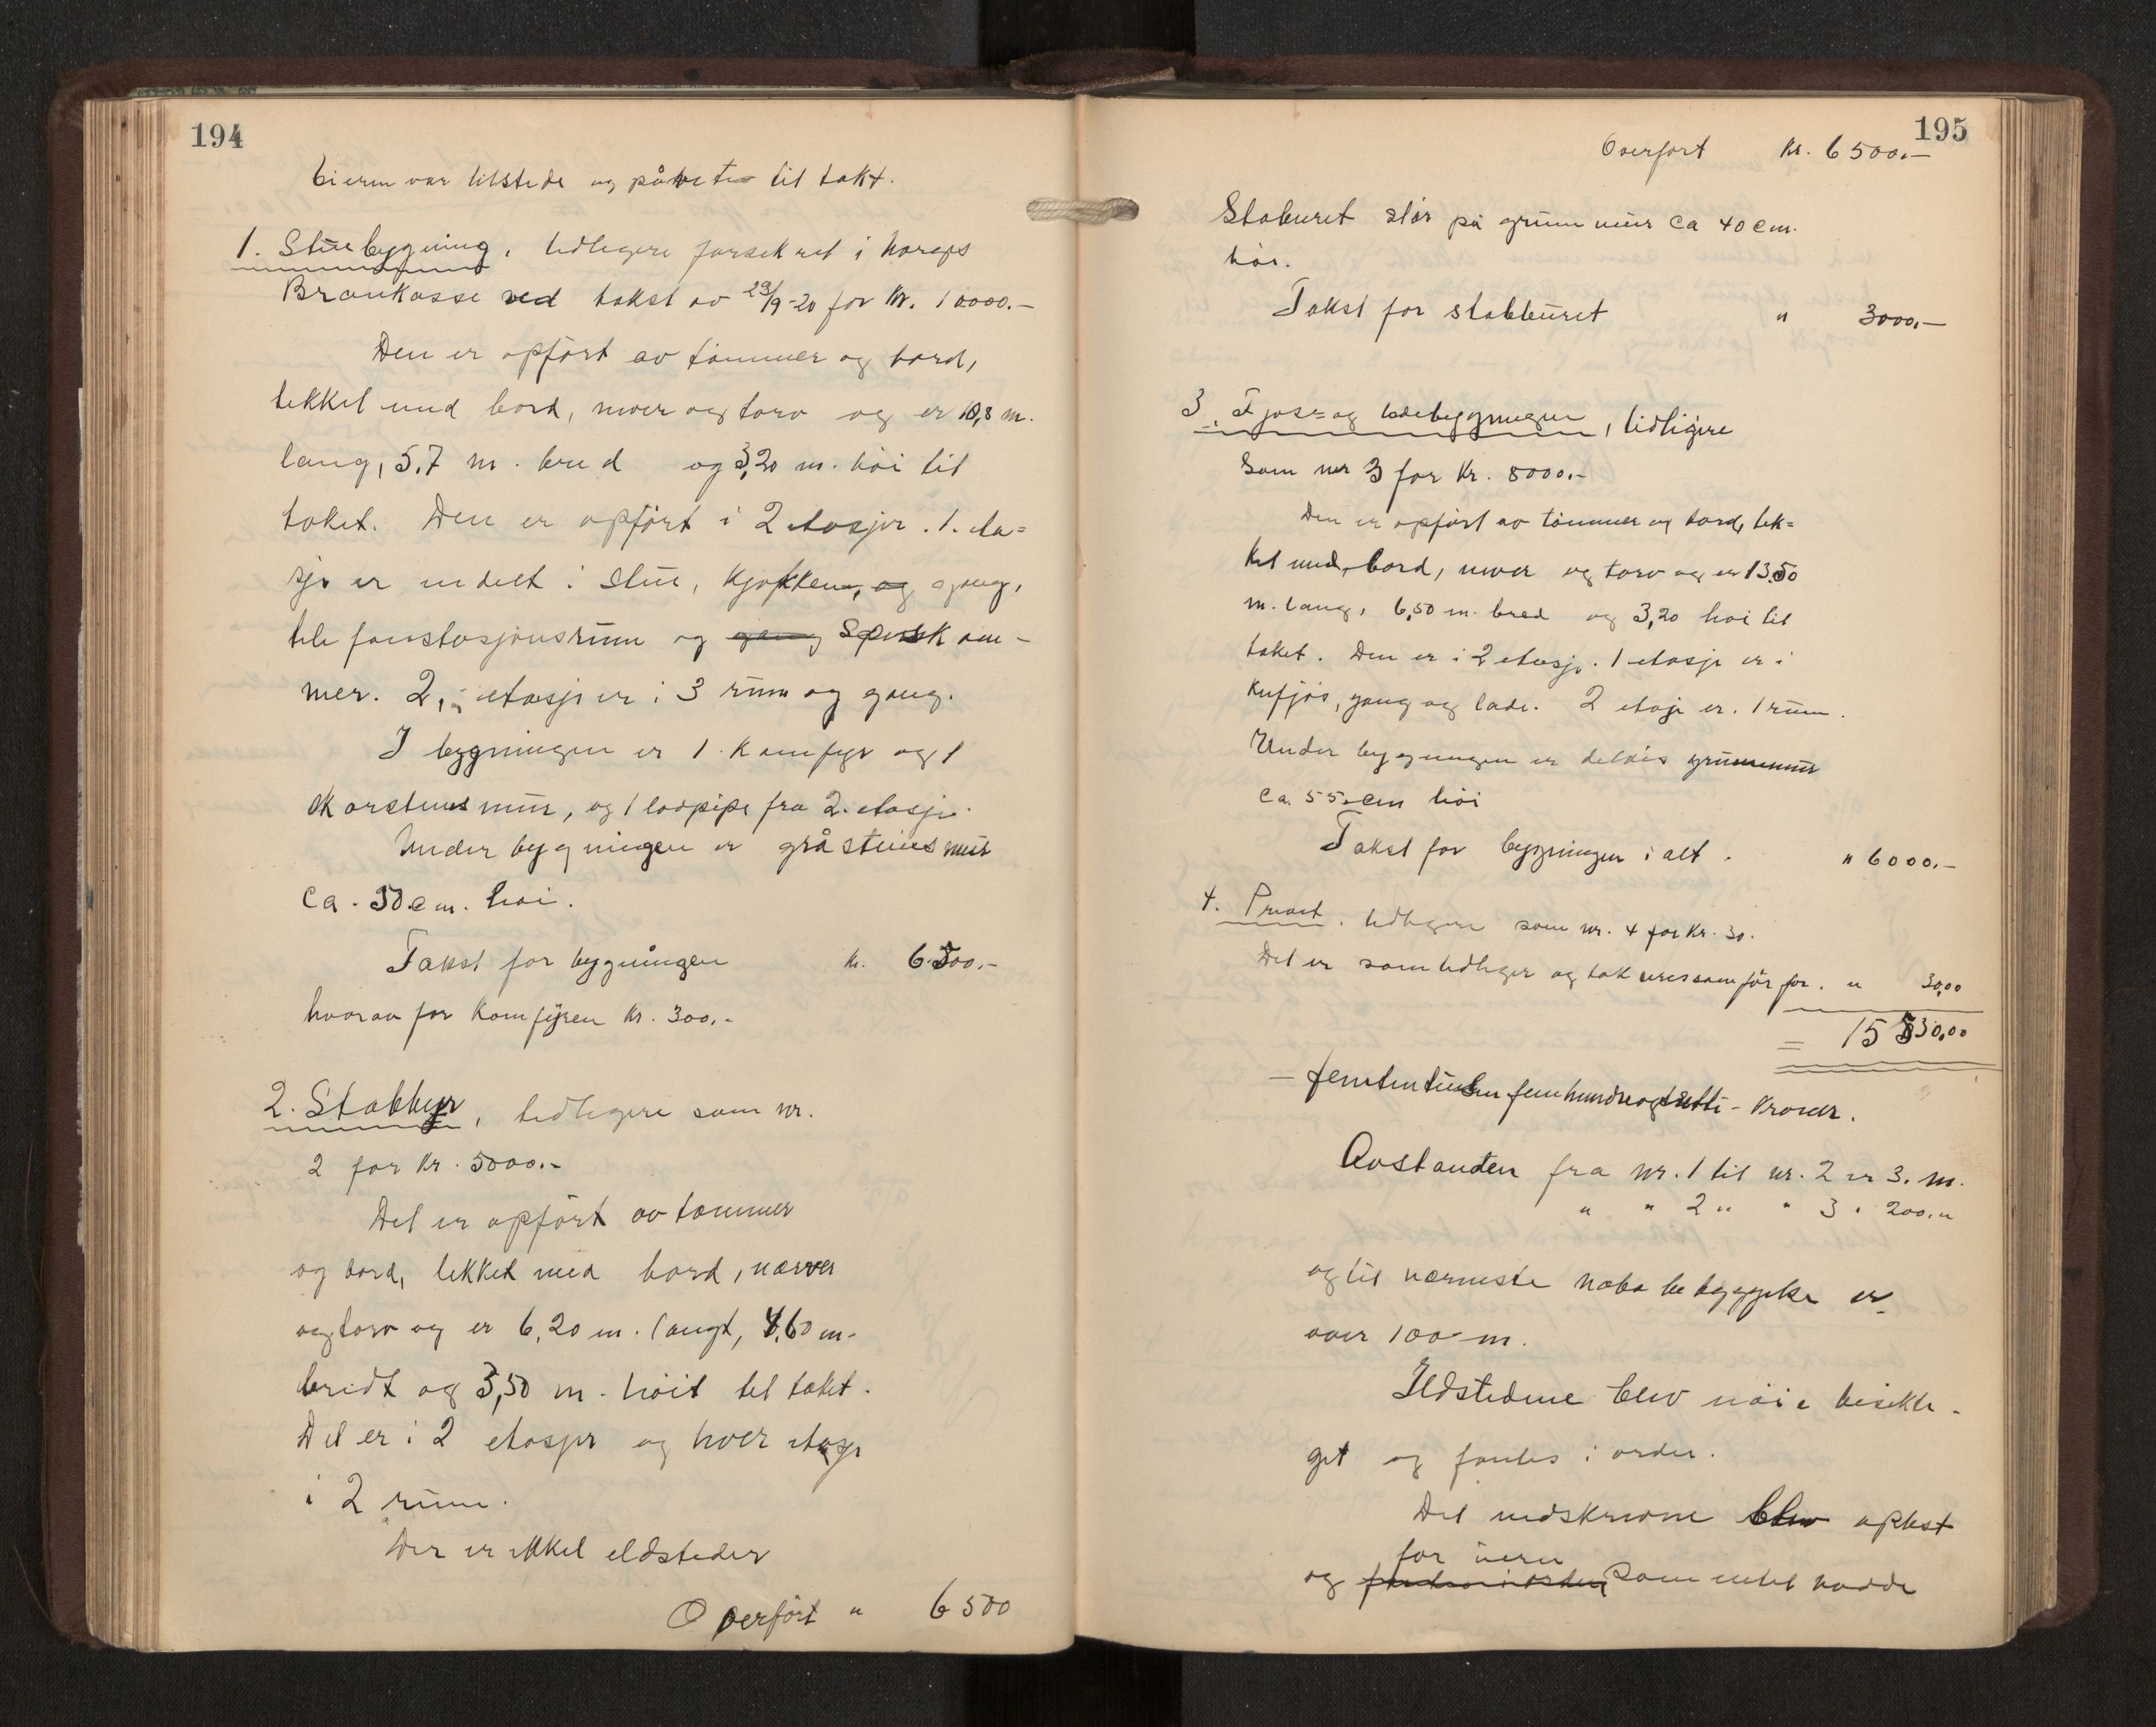 194
Eieren var tilstede og påviste til takt.
1. Stuebygning, tidligere forsekret i Norges
Brankasse ved takst av 29/9-20 for kr. 10000.-
Den er opført av tømmer og bord,
tekket med bord, never og torv og er 10,8 m.
lang, 5,7 m. bred og 3,20 m. høi til
taket. Den er opført i 2 etasjer. 1. eta=
sje er indelt i stue, kjøkken, og gang,
telefonstasjonsrum og gang Spiskam-
mer. 2. etasje er i 3 rum og gang.
I bygningen er 1 komfyr og 1
skorstensmur, og 1 lodpipe fra 2. etasje.
Under bygningen er gråsteinsmur
ca. 50 cm. høi.
Takst for bygningen kr. 6500.-
hvorav for komfyren kr. 300.-
2. Stabbur, tidligere som nr.
2 for kr. 5000.-
Det er opført av tømmer
og bord, tekket med bord, never
og torv og er 6,20 m. langt, 4,60 m.
bredt og 3,50 m. høit til taket.
Det er i 2 etasjer og hver etasje
i 2 rum.
Der er ikke ildsteder
Overført " 6500
195
Overført kr. 6500.-
Staburet står på grunnmur ca 40 cm.
høi.
Takst for stabburet " 3000.-
3. Fjøs= og ladebygningen, tidligere
som nr 3 for kr. 8000.-
Den er opført av tømmer og bord, tek=
ket med bord, never og torv og er 13,50
m. lang, 6,50 m. bred og 3,20 høi til
taket. Den er i 2 etasje. 1 etasje er i
kufjøs, gang og lade. 2 etaje er 1 rum.
Under bygningen er delvis grunnmur
ca. 55 cm høi
Takst for bygningen i alt. " 6000.-
4. Privet. tidligere som nr. 4 for kr. 30.
Det er som tidliger og takseres som før for. " 30,00
= 15530,00
- femtentusen femhundreogtretti - kroner.
Avstanden fra nr. 1 til nr. 2 er 3. m.
" " 2 " " 3 " 200. "
og til nærmeste nabo bebyggelse er
over 100 m.
Ildstedene blev nøie besikti-
get og fantes i orden.
Det nedskrevne blev oplest
for
og som intet hadde